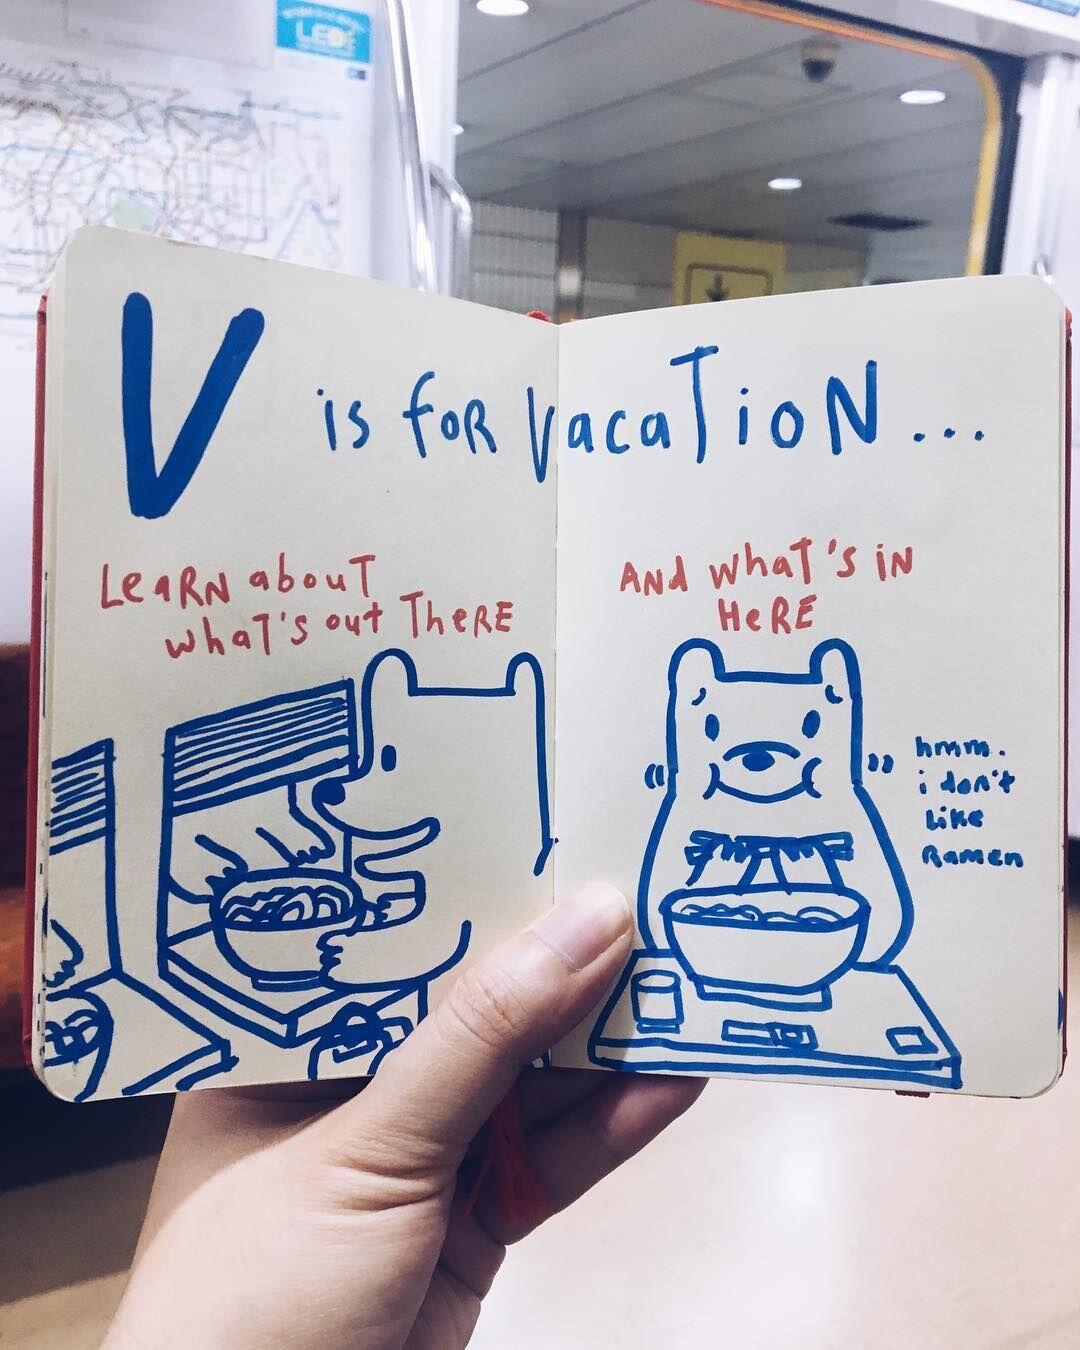 LED
V is foR vacaTioN...
LeaRN abouT
whaT's out TheRE
ANd whaT's iN
HeRE
hmm.
i don't
like
Ramen